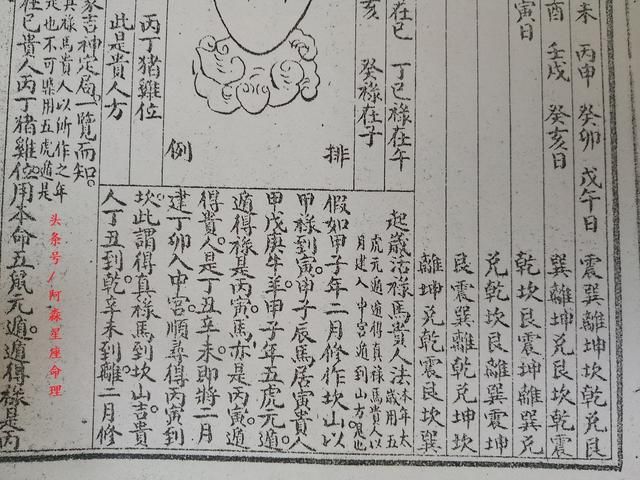 未 丙申 癸卯 戊午日 震巽離坤坎乾兌艮
酉 壬戌 癸亥日 巽離坤兌艮坎乾震
寅日 乾坎艮坤離巽兌
兌乾坎艮離震坤
艮震巽離乾兌坤坎
離坤兌乾震艮坎巽
在巳 丁巳祿在午
亥 癸祿在子
排
例
丙丁猪雞位
此是貴人方
起歲活祿馬貴人法
本年太歲用五
虎元遁遁得真祿馬貴人以
月建入中宮遁到山方是也
假如甲子年二月修作坎山以
甲祿到寅。甲子辰馬居寅貴人
甲戊庚牛羊甲子年五虎元遁
遁得祿是丙寅。馬亦是丙寅。遁
得貴人。是丁丑辛未即將二月
建丁卯入中宮。順尋得丙寅到
坎。此謂得真祿馬到坎山吉。貴
人丁丑到乾。辛未到離。二月修
家吉神定局一覽而知。
真祿馬貴人以所作之年
是也不可槩用五虎遁是
在巳貴人丙丁猪雞位用本命五鼠元遁。遁得祿是丙
头条号/阿森星座命理